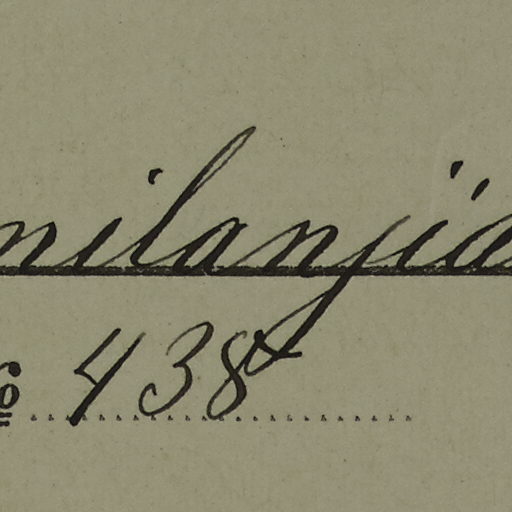 milanjia
№ 438